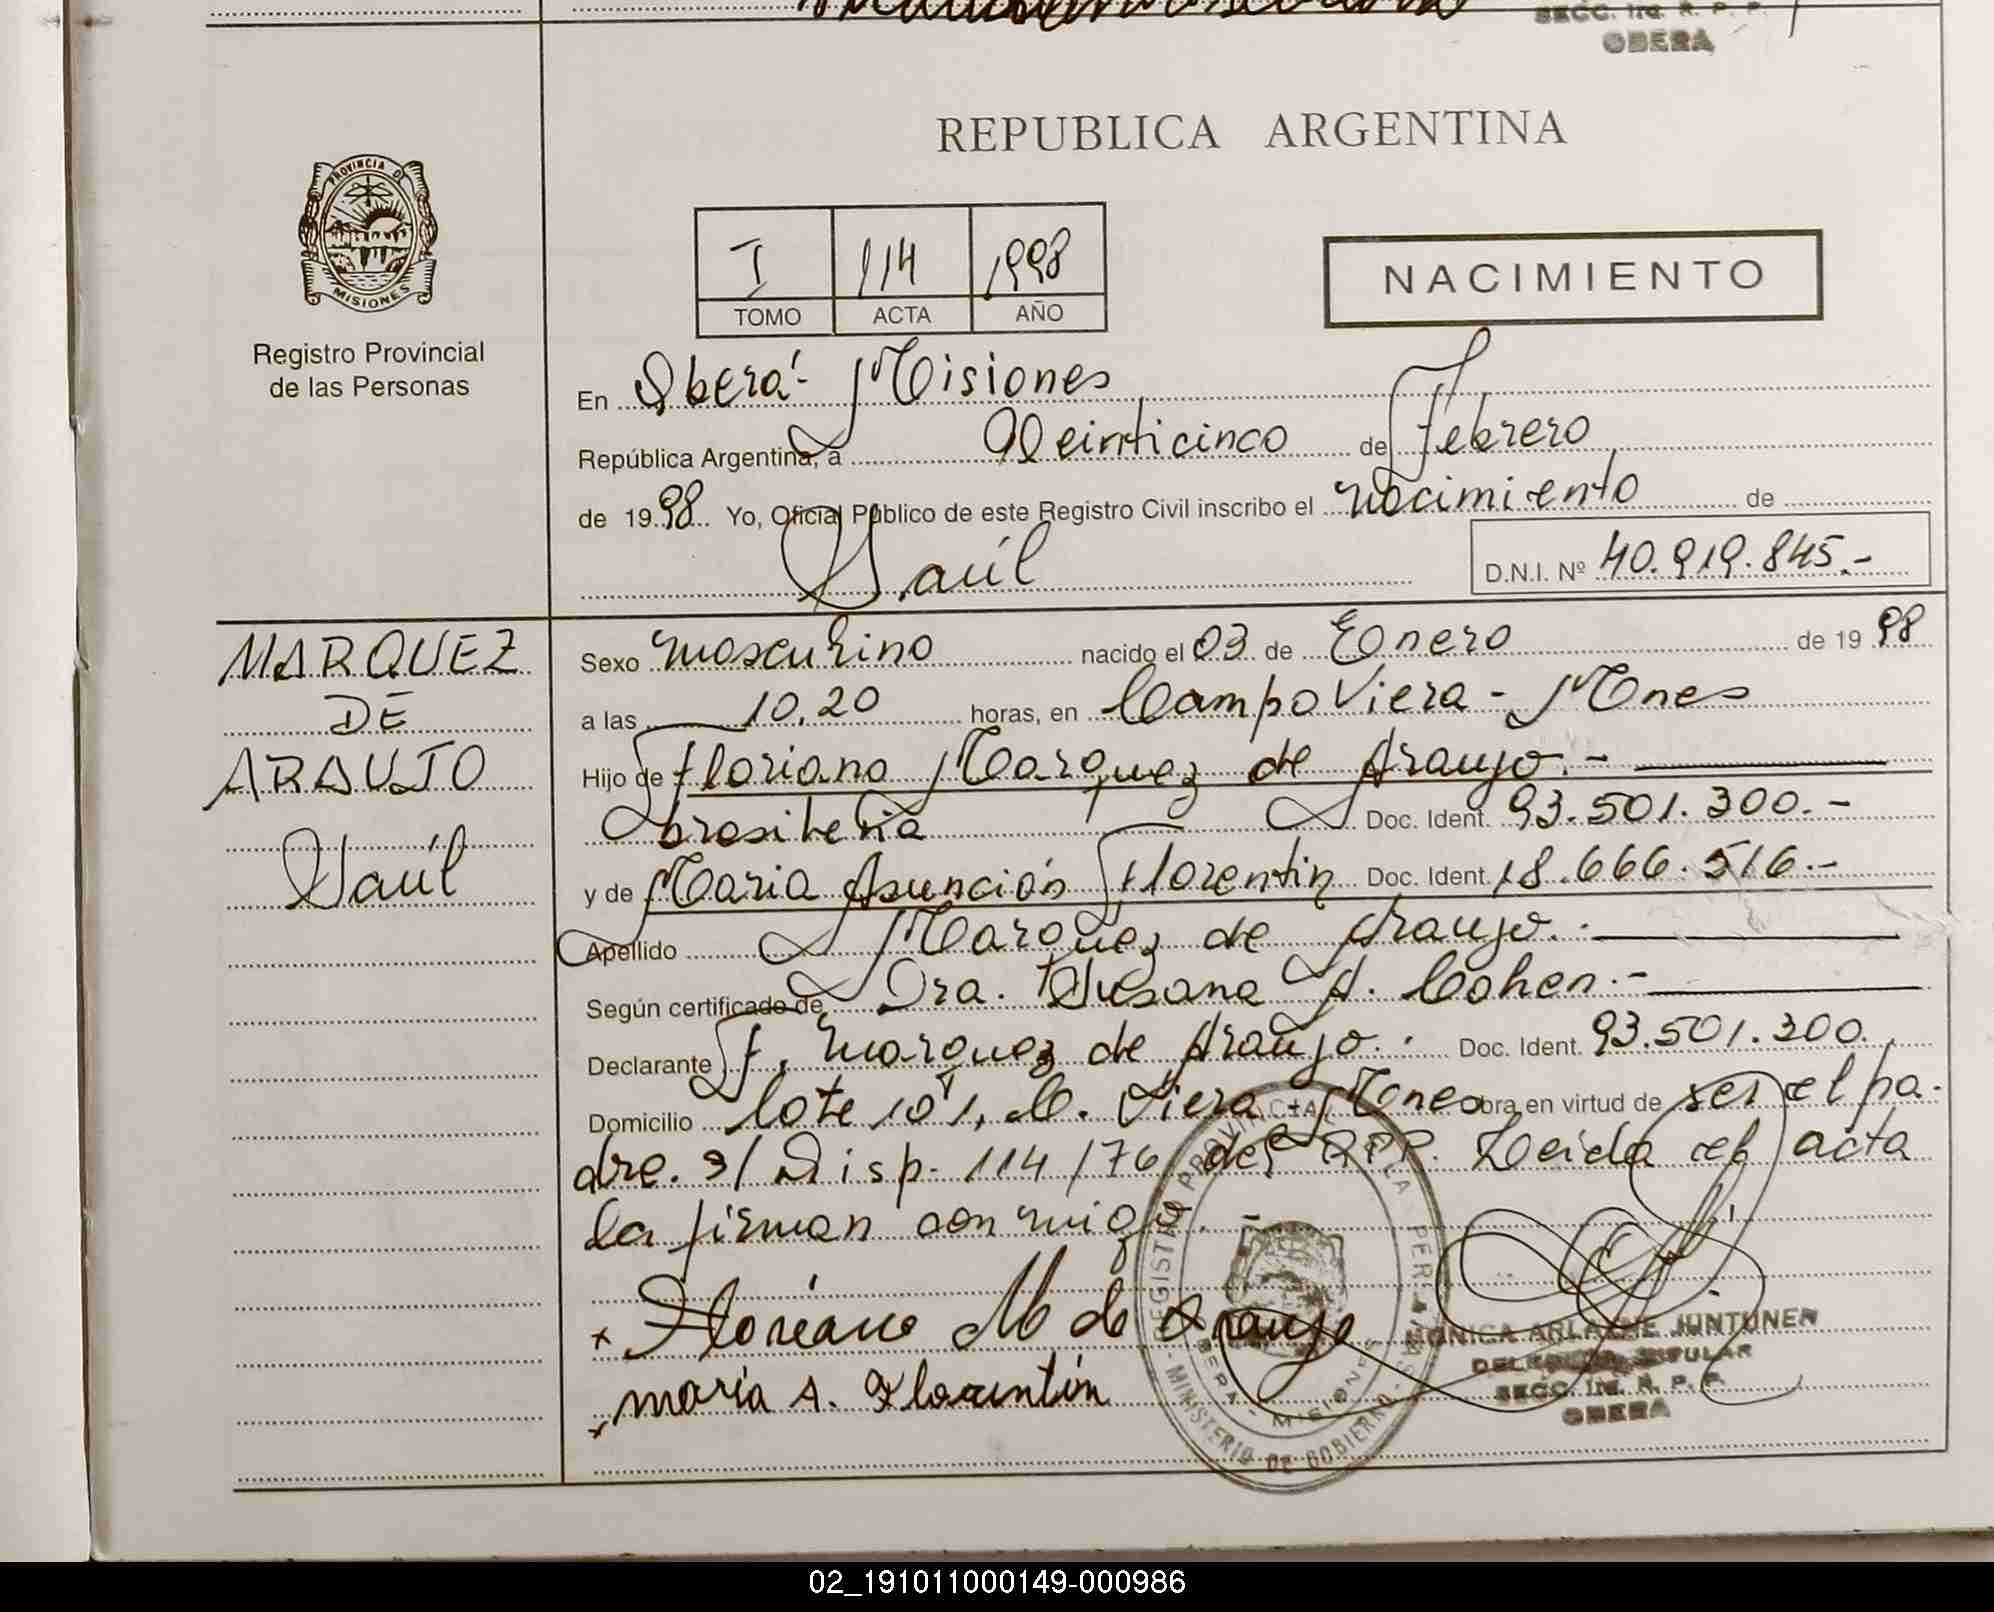 SECC. 1ra. R. P. P.
OBERA
REPUBLICA ARGENTINA
PROVINCIA DE
MISIONES
Registro Provincial
de las Personas
I 114 1998
TOMO ACTA AÑO
NACIMIENTO
En Oberá - Misiones
República Argentina, a Veinticinco de Febrero
de 1998 Yo, Oficial Público de este Registro Civil inscribo el nacimiento de
Saúl
D.N.I. Nº 40.919.845.-
MARQUEZ
DE
ARAUJO
Saúl
Sexo masculino nacido el 03 de Enero de 1998
a las 10.20 horas, en Campo Viera - Mnes
Hijo de Floriano Marquez de Araujo.-
brasileña Doc. Ident. 93.501.300.-
y de Maria Asunción Florentin Doc. Ident. 18.666.516.-
Apellido Marquez de Araujo.-
Según certificado de Dra. Susana A. Cohen.-
Declarante F. Marquez de Araujo. Doc. Ident. 93.501.300.
Domicilio lote 101, C. Viera - Mnes obra en virtud de ser el pa-
dre. s/ Disp. 114/76 del RPP. Leida el acta
la firman conmigo.-
x Floriano M de Araujo
x maria A. Florentín
REGISTRO PROVINCIAL DE LAS PERSONAS
OBERA - MISIONES
- MINISTERIO DE GOBIERNO -
MONICA ARLAENE JUNTUNEN
DELEGADA TITULAR
SECC. 1ra. R. P. P.
OBERA
02_191011000149-000986